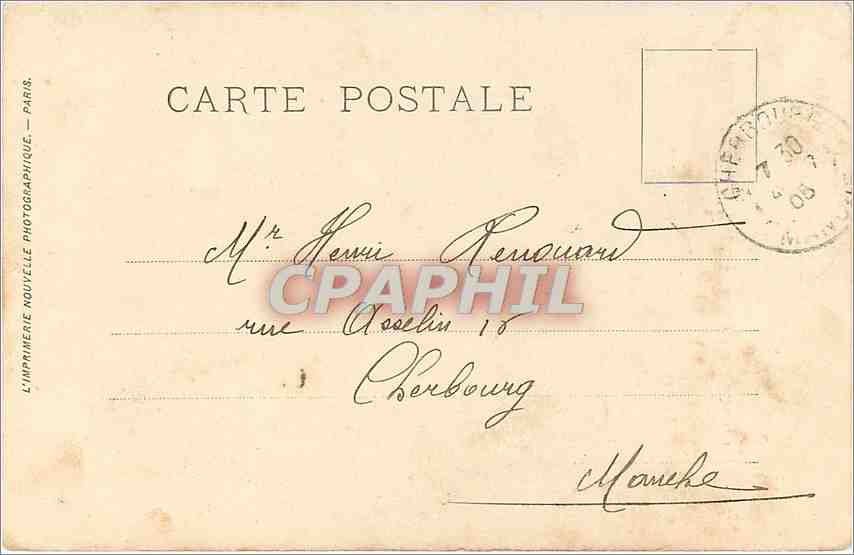 CARTE POSTALE
L'IMPRIMERIE NOUVELLE PHOTOGRAPHIQUE. — PARIS.
CHERBOURG
7 30
05
Mr Henri Renouard
CPAPHIL
rue Asselin 18
Cherbourg
Manche